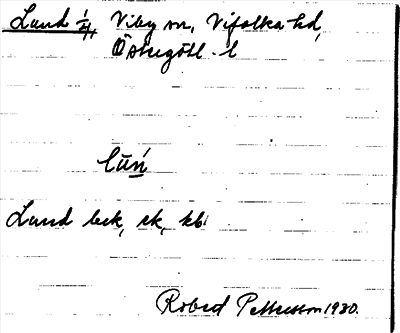 Lund 1/4, Viby sn, Vifolka hd,
Östergötl. l
lūń
Lund bek, sk, kb.
Robert Pettersson 1930.